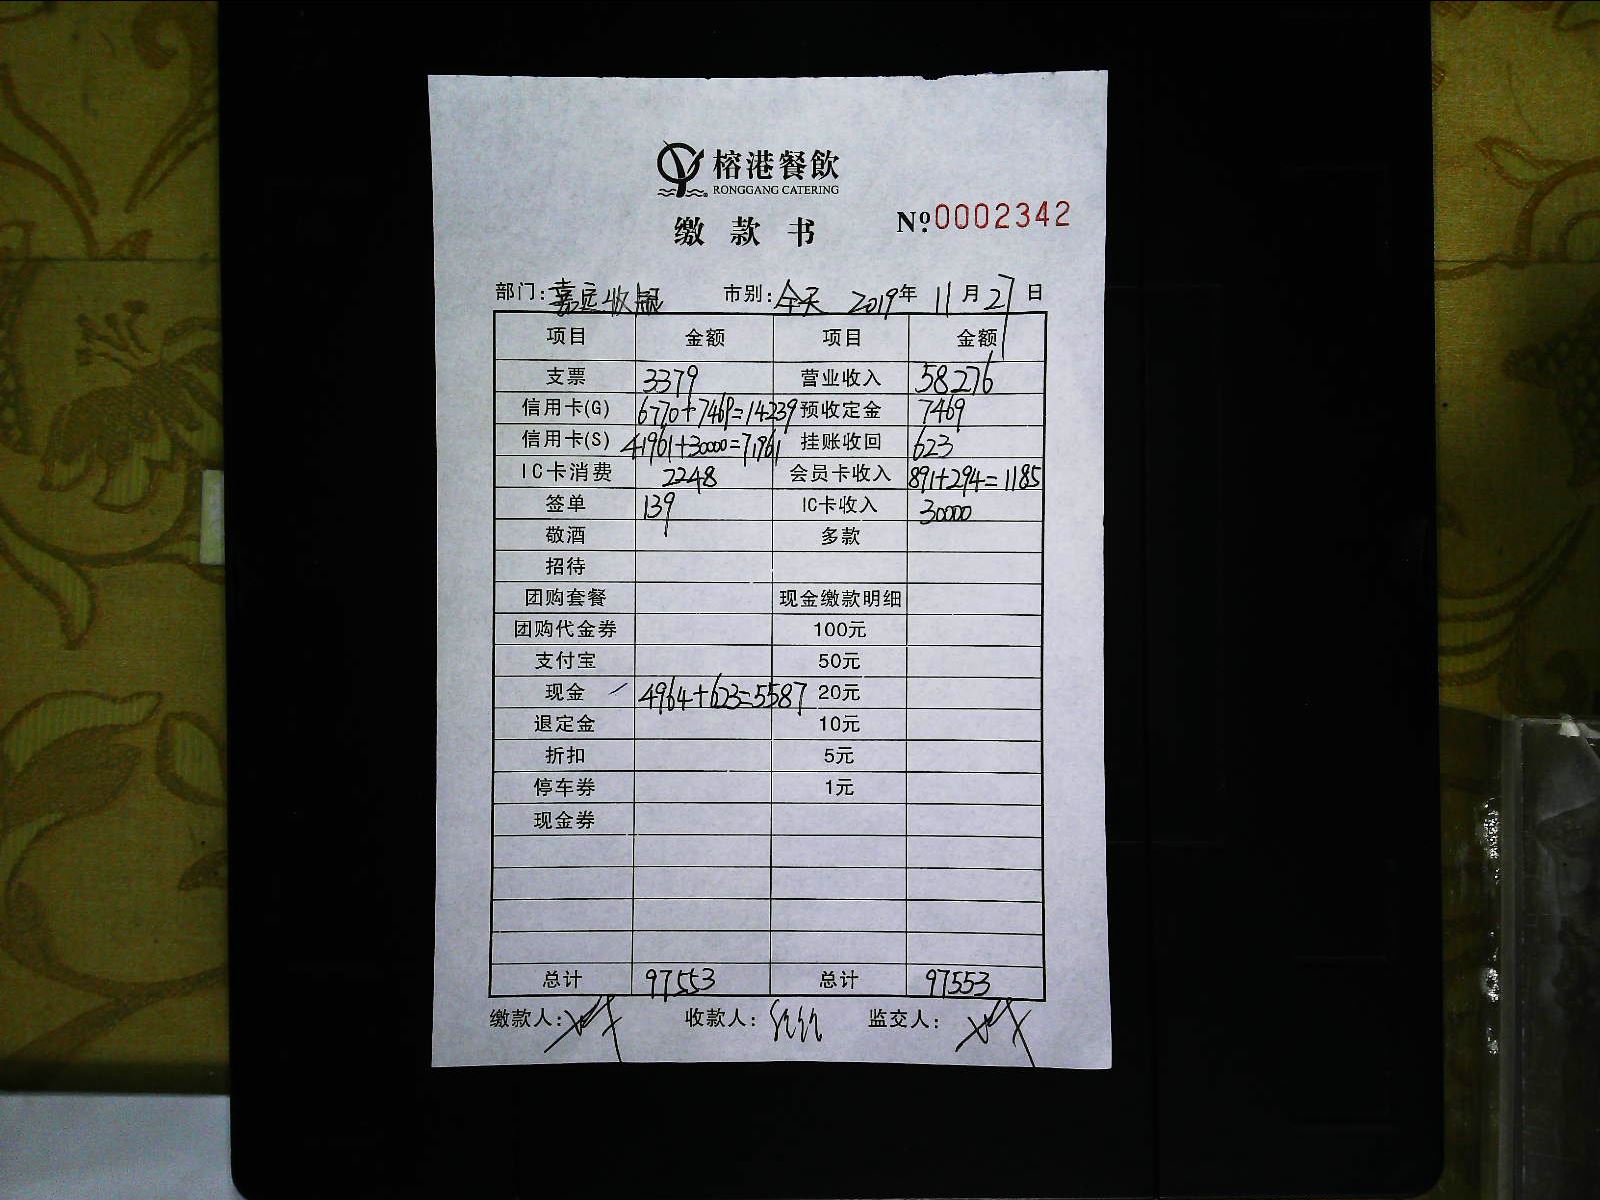 榕港餐飲
RONGGANG CATERING
缴款书 №0002342
部门:嘉 收银 市别:全天 2019年11月27日
项目 金额 项目 金额
支票 3379 营业收入 58276
信用卡(G) 6770+7469=14239 预收定金 7469
信用卡(S) 41961+30000=71961 挂账收回 623
IC卡消费 2248 会员卡收入 891+294=1185
签单 139 IC卡收入 30000
敬酒 多款
招待
团购套餐 现金缴款明细
团购代金券 100元
支付宝 50元
现金 4964+623=5587 20元
退定金 10元
折扣 5元
停车券 1元
现金券
总计 97553 总计 97553
缴款人: 收款人: 监交人: